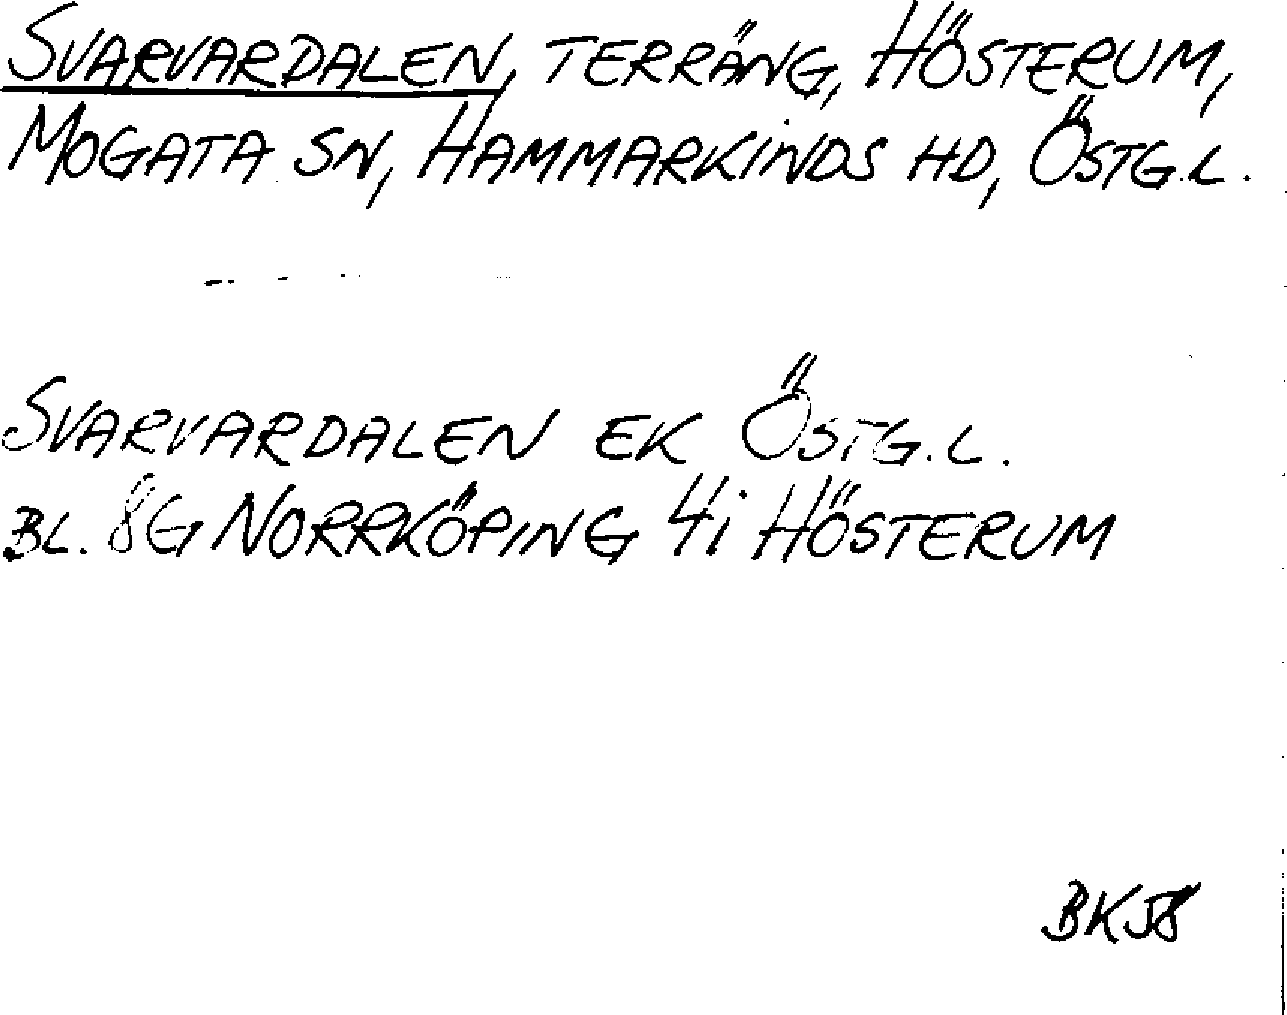 SVARVARDALEN, TERRÄNG, HÖSTERUM,
MOGATA SN, HAMMARKINDS HD, ÖSTG.L.
SVARVARDALEN EK ÖSTG.L.
BL. 8G NORRKÖPING 4i HÖSTERUM